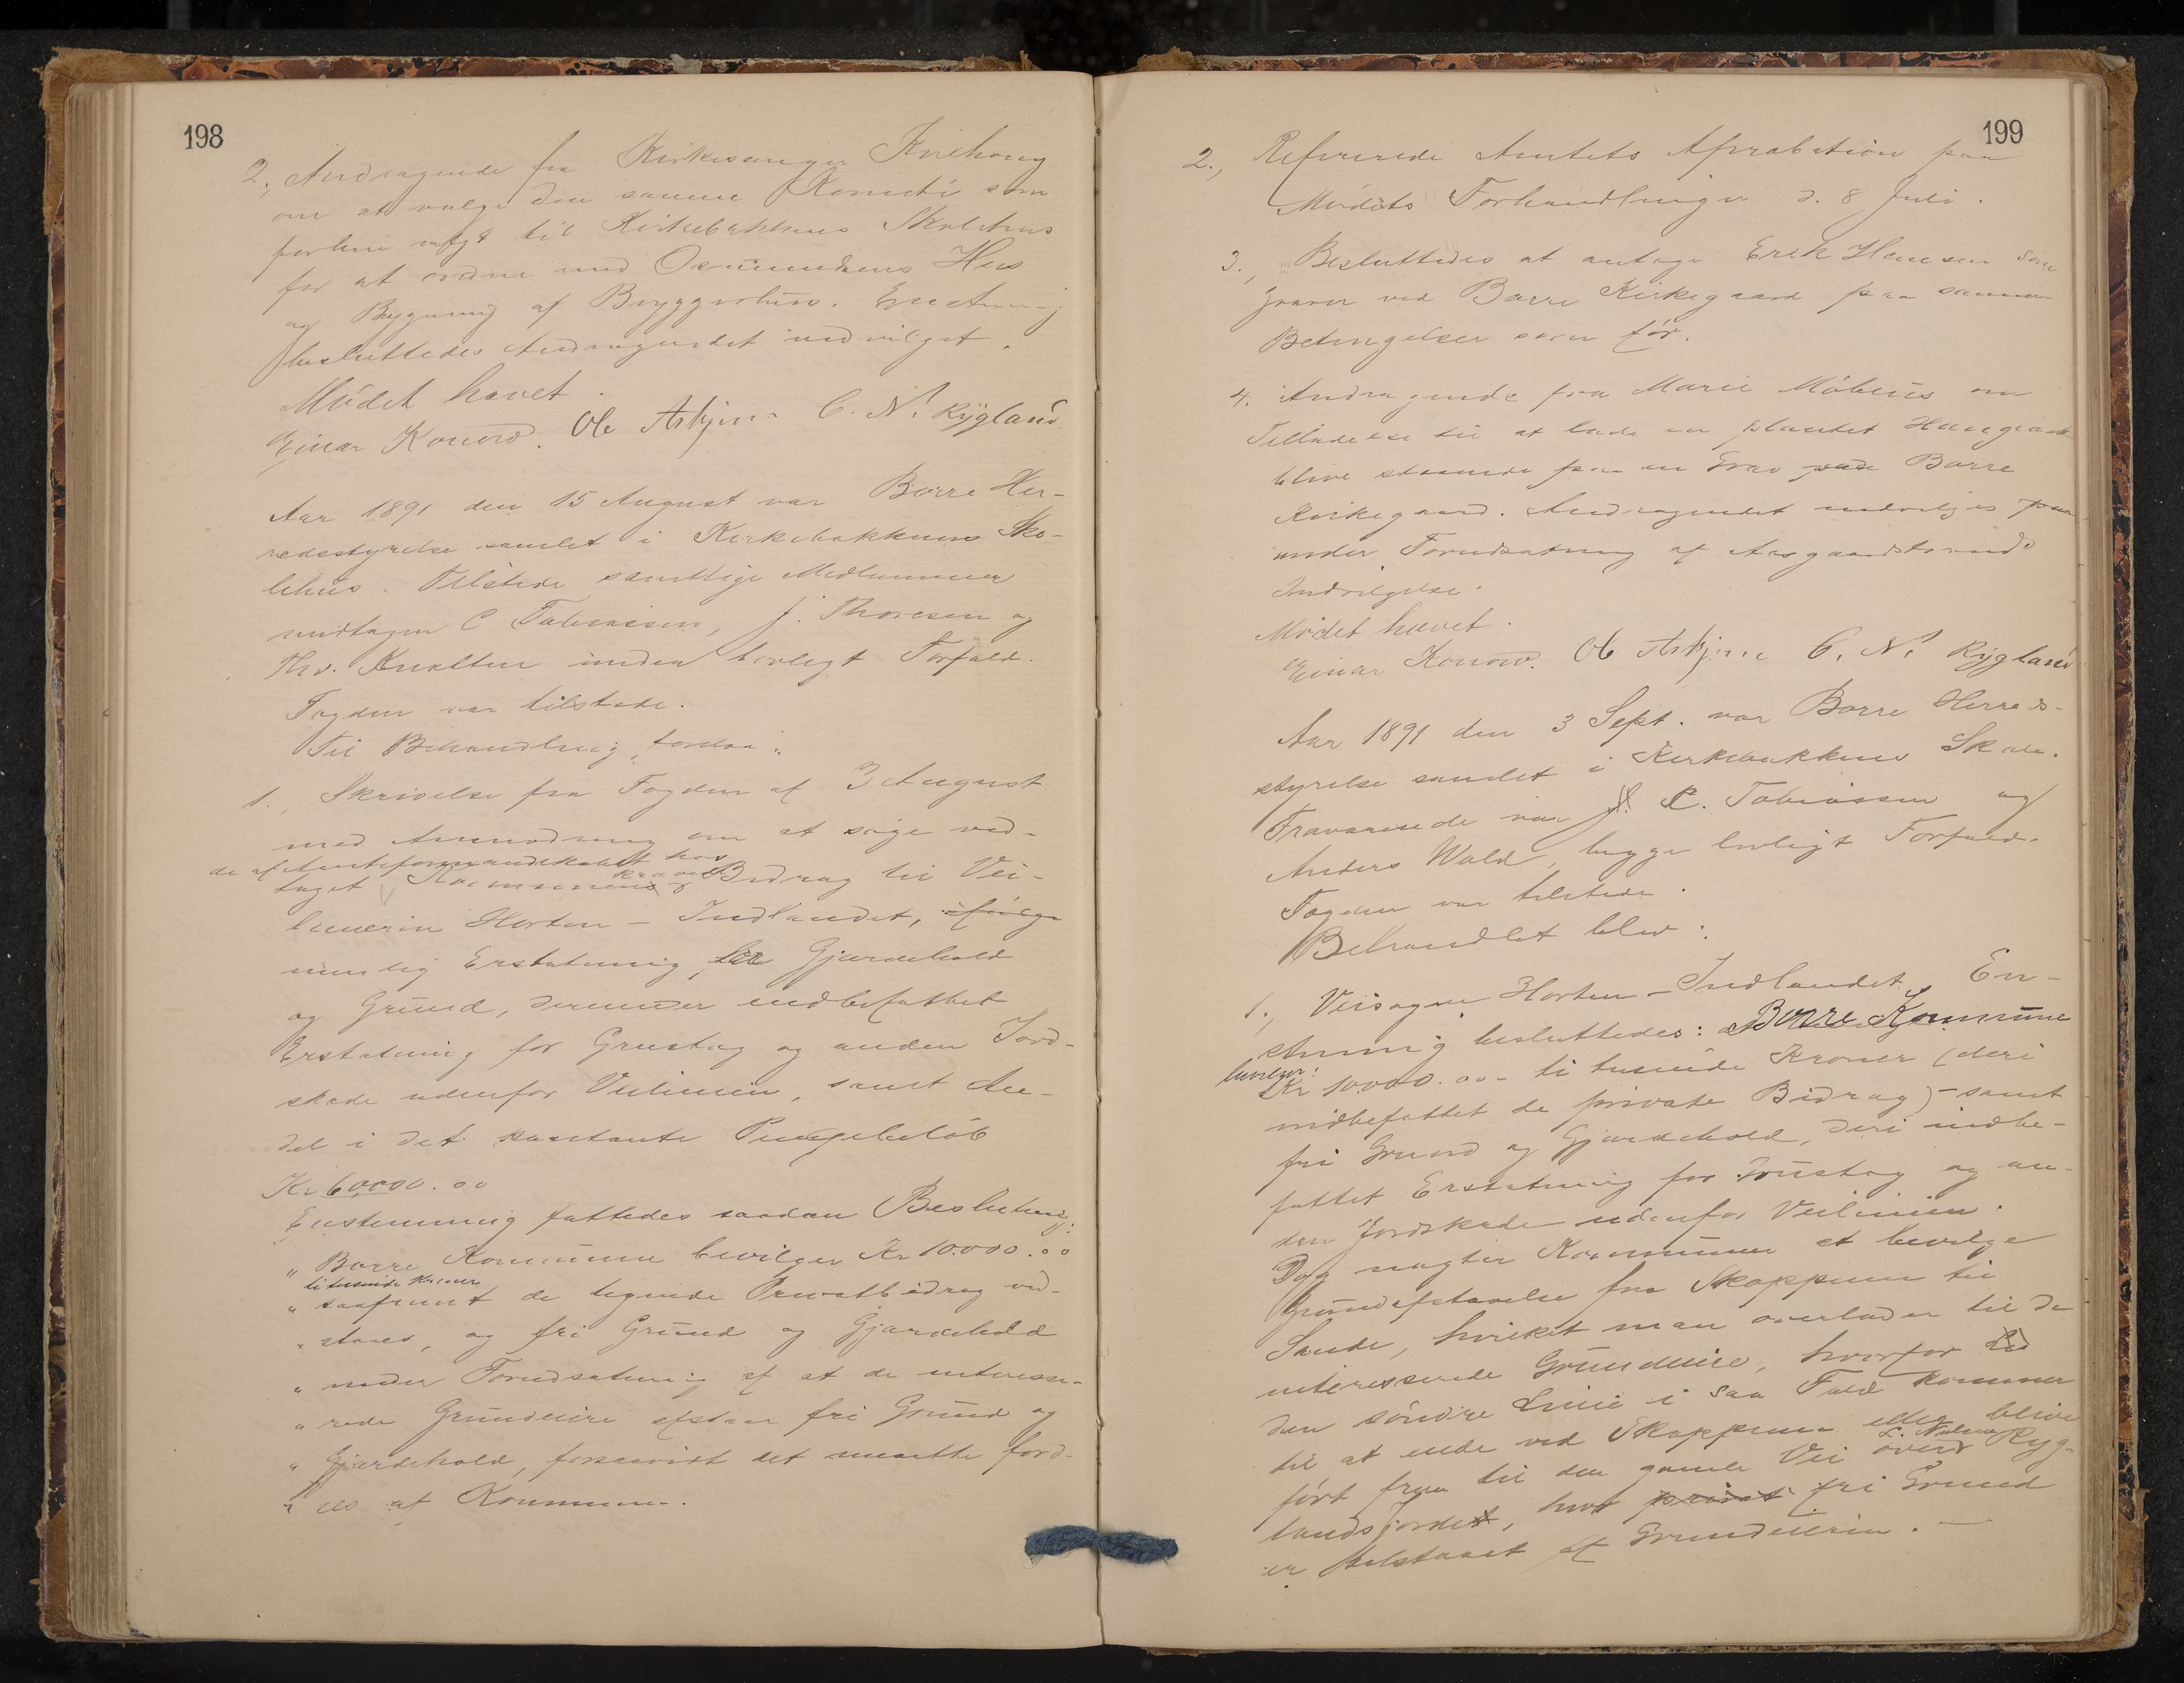 198
2., Andragende fra Kirkesanger Kirehong
om at vælge den samme Komité som
forhen valgt til Kirkebakkens Skolehus
for at ordne med Osmundsens Hus
og Bygning af Bryggerhus. Enstemmig
besluttedes Andragendet indvilget.
Mödet hævet.
Einar Konow. Ole Asbjörn C. N. Rygland
Aar 1891 den 15 August var Borre Her-
redsstyrelse samlet i Kirkebakkens Sko-
lehus. Tilstede samtlige Medlemmer
undtagen C Tobiassen, J. Thoresen og
Ths. Knalten uden lovligt Forfald.
Fogden var tilstede.
Til Behandling forelaa:
1., Skrivelse fra Fogden af 3 August
med Anmodning om at söge ved-
de af Amtsformandskabet hos
taget Kommunen krævede Bidrag til Vei-
linierin Horten - Indlandet, ifölge
nemlig Erstatning for Gjærdehold
og Grund, derunder indbefattet
Erstatning for Grustag og anden Jord-
skade udenfor Veilinien, samt An-
del i det kontante Pengebelöb
Kr 6000.00
Enstemmig fattedes saadan Beslutning:
" Borre Kommune bevilger Kr 10.000.00
titusinde Kroner
" saafremt de tegnede Privatbidrag ved-
" staaes, og fri Grund og Gjærdehold
" under Forudsætning af at de interesse-
" rede Grundeiere afstaar fri Grund og
" Gjærdehold, forsaavidt det maatte ford-
" res af Kommunen.
199
2., Refererede Amtets Aprobation paa
Mödets Forhandlinger d. 8 Juli.
3., Besluttedes at antage Erik Hansen som
Graver ved Borre Kirkegaard paa samme
Betingelser som för.
4. Andragende fra Marie Möbius om
Tilladelse til at lade en plantet Hængeask
blive staaende paa en Grav paa Borre
Kirkegaard. Andragendet indvilges paa
under Forudsætning af Aasgaardstrands
Indvilgelse.
Mödet hævet.
Einar Konow. Ole Asbjörn C. N. Rygland
Aar 1891 den 3 Sept. var Borre Herreds-
styrelse samlet i Kirkebakkens Skole.
Fraværende var C. Tobiassen og
Anders Wold, begge lovligt Forfald.
Fogden var tilstede.
Behandlet blev:
1., Veisagen Horten - Indlandet. En-
stemmig besluttedes: Borre Kommune
bevilger:
Kr 10.000.00 - titusinde Kroner (deri
indbefattet de private Bidrag) - samt
fri Grund og Gjærdehold, deri indbe-
fattet Erstatning for Grustag og an-
den Jordskade udenfor Veilinien.
Dog nægter Kommunen at bevilge
Grundafstaaelse fra Skoppum til
Sande, hvilket man overlader til de
interesserede Grundeiere, hvorfor
den söndre Linie i saa Fald kommer
til at ende ved Skoppum eller blive
fört frem til den gamle Vei over Nedre Ryg-
landsjordet, hvor privat fri Grund
er tilstaaet af Grundeieren. -